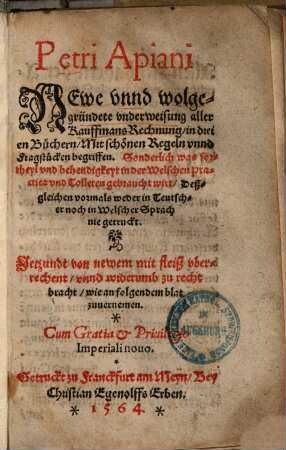 Petri Apiani
NEwe vnnd wolge-
gründete vnderweisung aller
Kauffmans Rechnung/ in drei
en Büchern/ Mit schönen Regeln vnnd
Fragstücken begriffen. Sonderlich was for
theyl vnd behendigkeyt in der Welschen Pra-
ctica vnd Tolleten gebraucht wirt/ Deß-
gleichen vormals weder in Teutsch-
er noch in Welscher Sprach
nie getruckt.
Jetzundt von newem mit fleiß vber-
rechent/ vnnd widerumb zu recht
bracht/ wie an folgendem blat
zuuernemen.
*
Cum Gratia & Priuilegio
Imperiali nouo.
*
Getruckt zu Franckfurt am Meyn/ Bey
Christian Egenolffs Erben.
* 1564. *